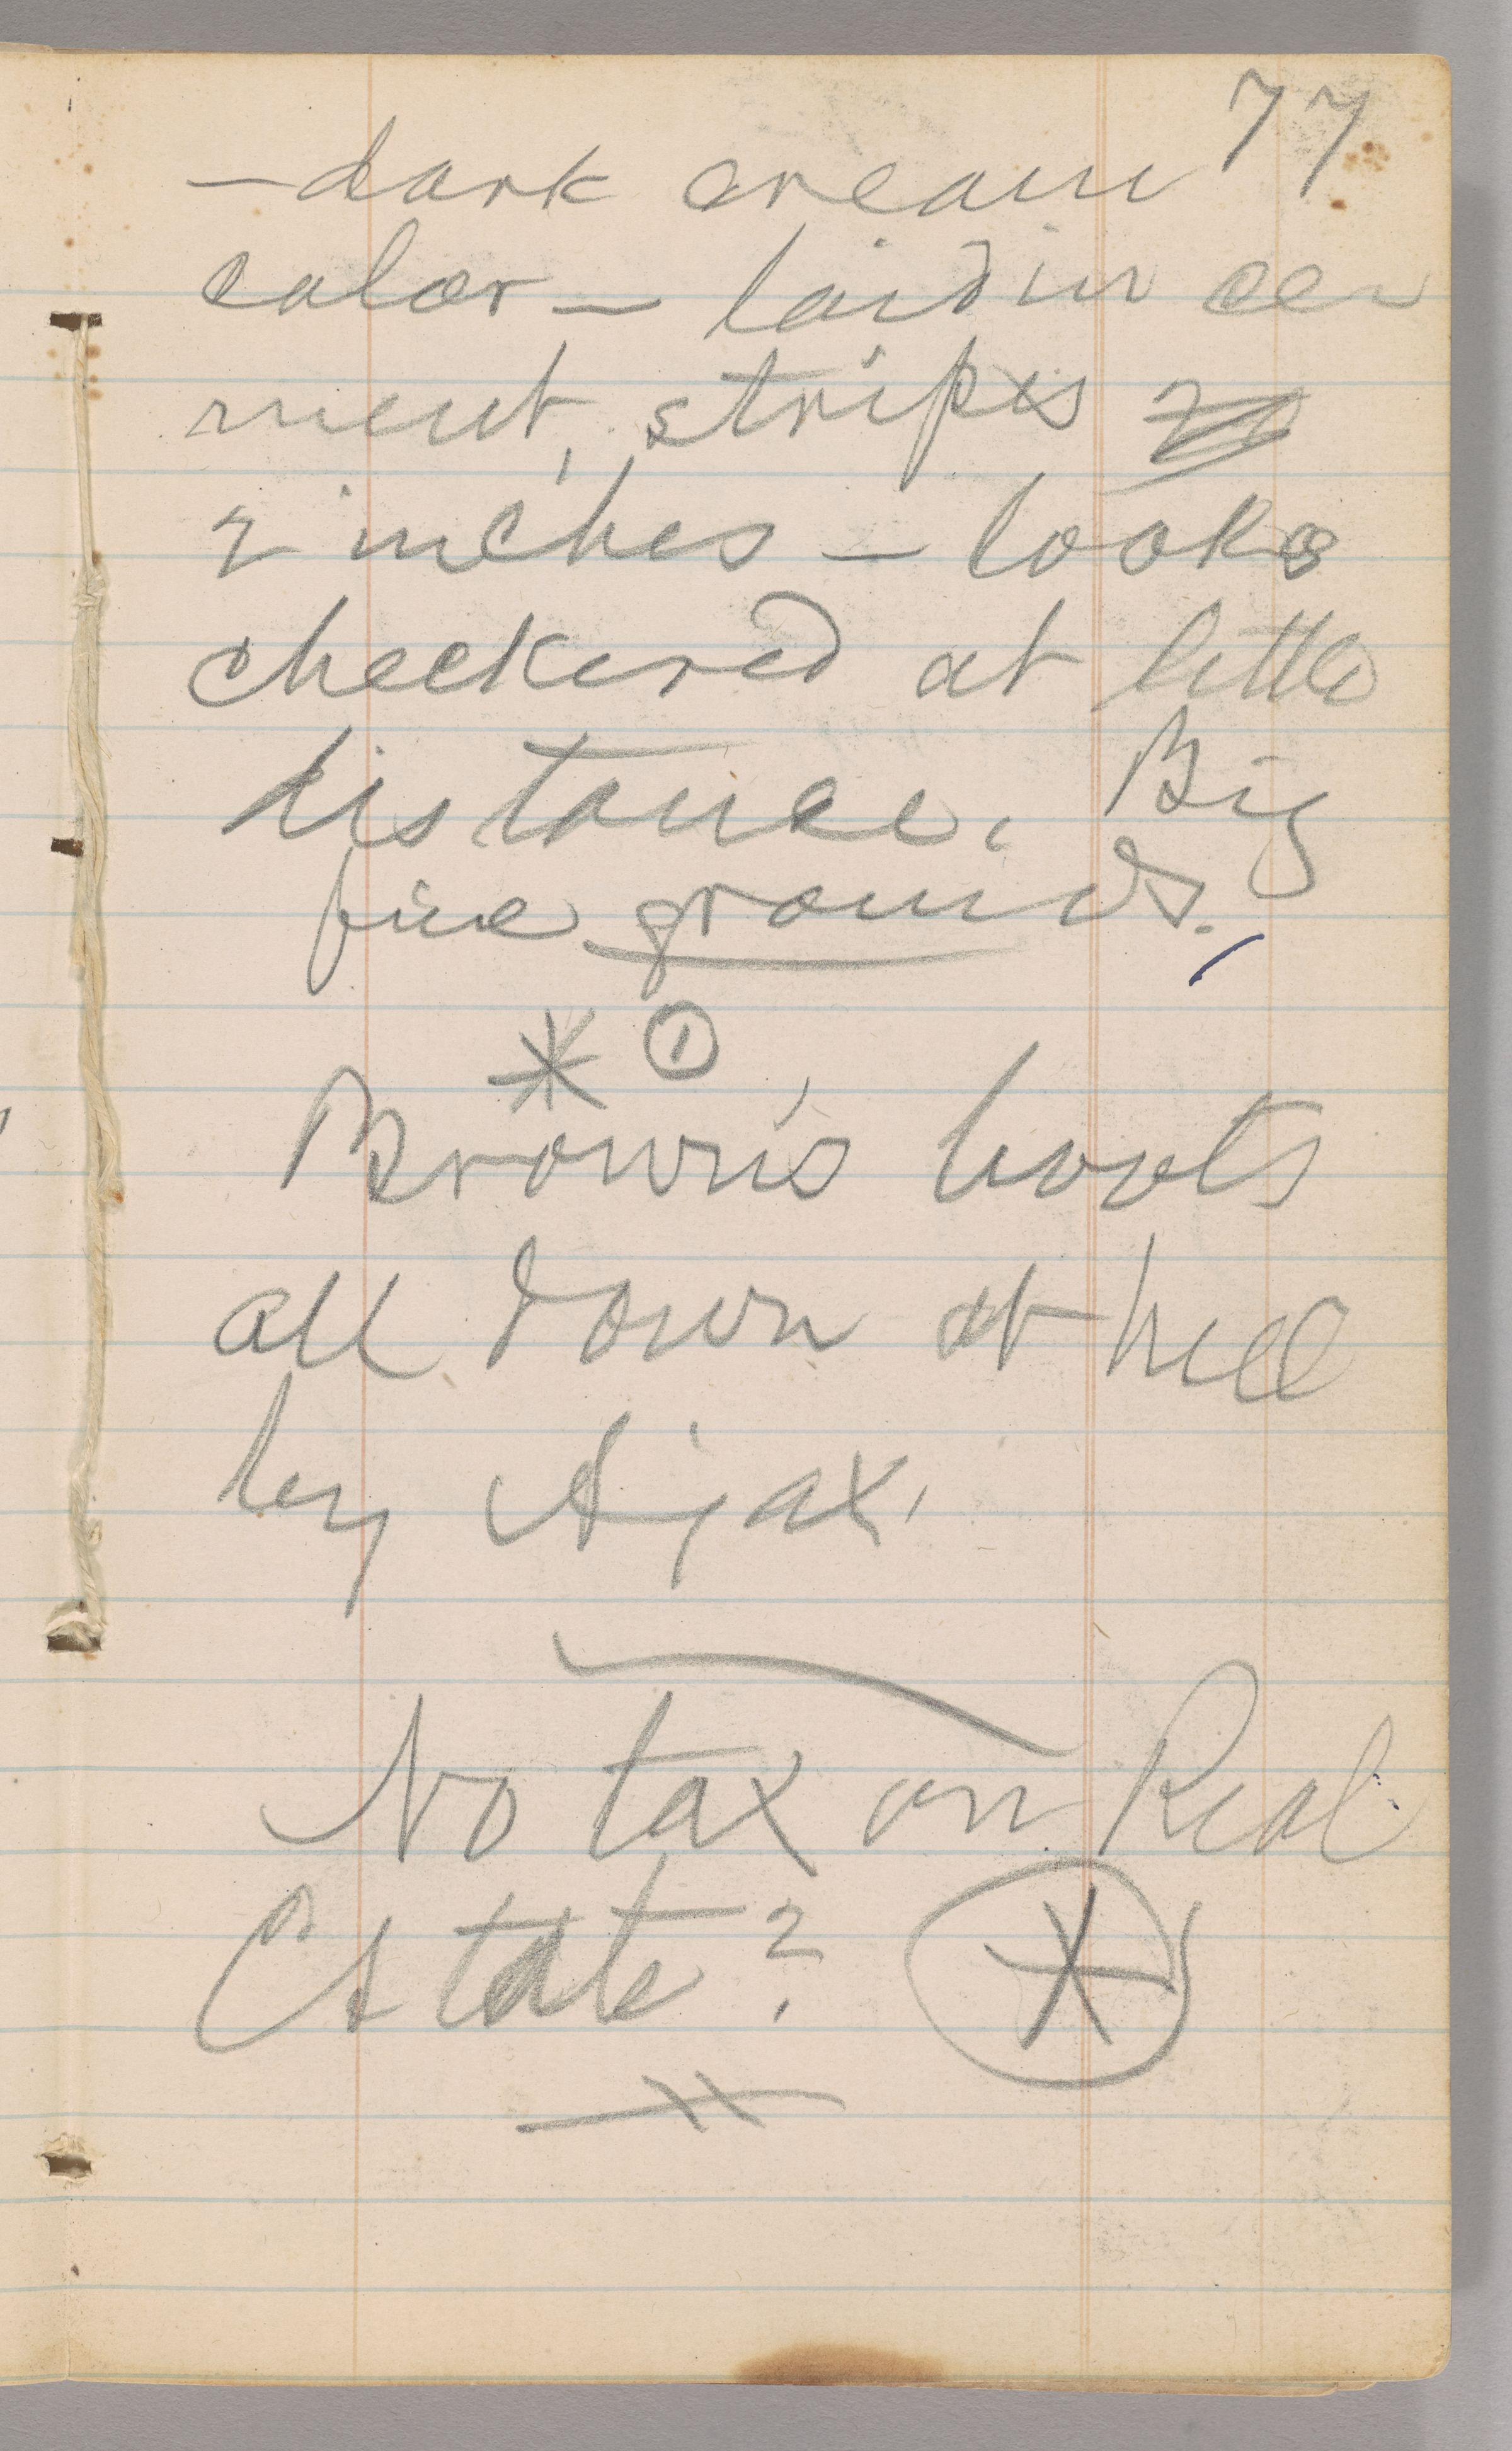 77
— dark cream
color — laid in ce-
ment, stripes
2 inches — looks
checkered at little
distance. Big
fine grounds.
* ①
Brown's boots
all down at heel
by Ajax.
No tax on Real
Estate? *